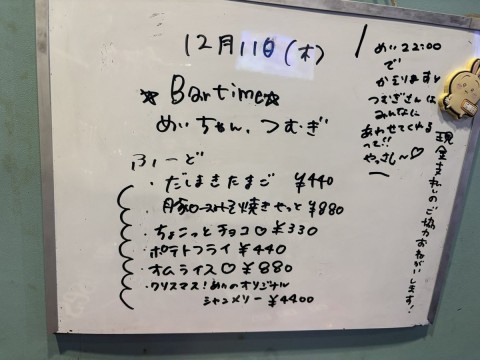 12月11日(木)
☆Bartime☆
めいちゃん、つむぎ
ふーど
・だしまきたまご ¥440
・豚ロースト 焼きせっと ¥880
・ちょこっとチョコ♡ ¥330
・ポテトフライ ¥440
・オムライス♡ ¥880
・クリスマス!めいのオリジナル
シャンメリー ¥4400
めい22:00
で
かえります
つむぎさんは
みんなに
あわせてくれる
って!!
やっさし〜♡
現金支払いのご協力おねがいします!